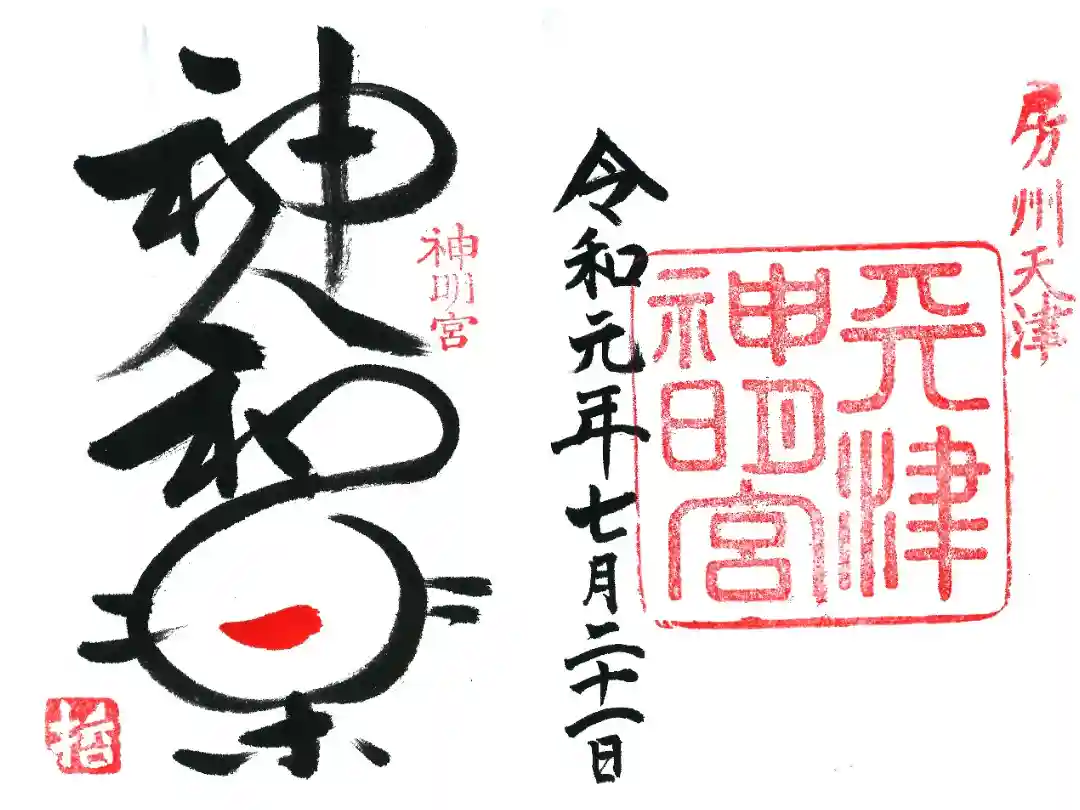 房州天津
天津
神明宮
令和元年七月二十一日
神明宮
神人和楽
哲